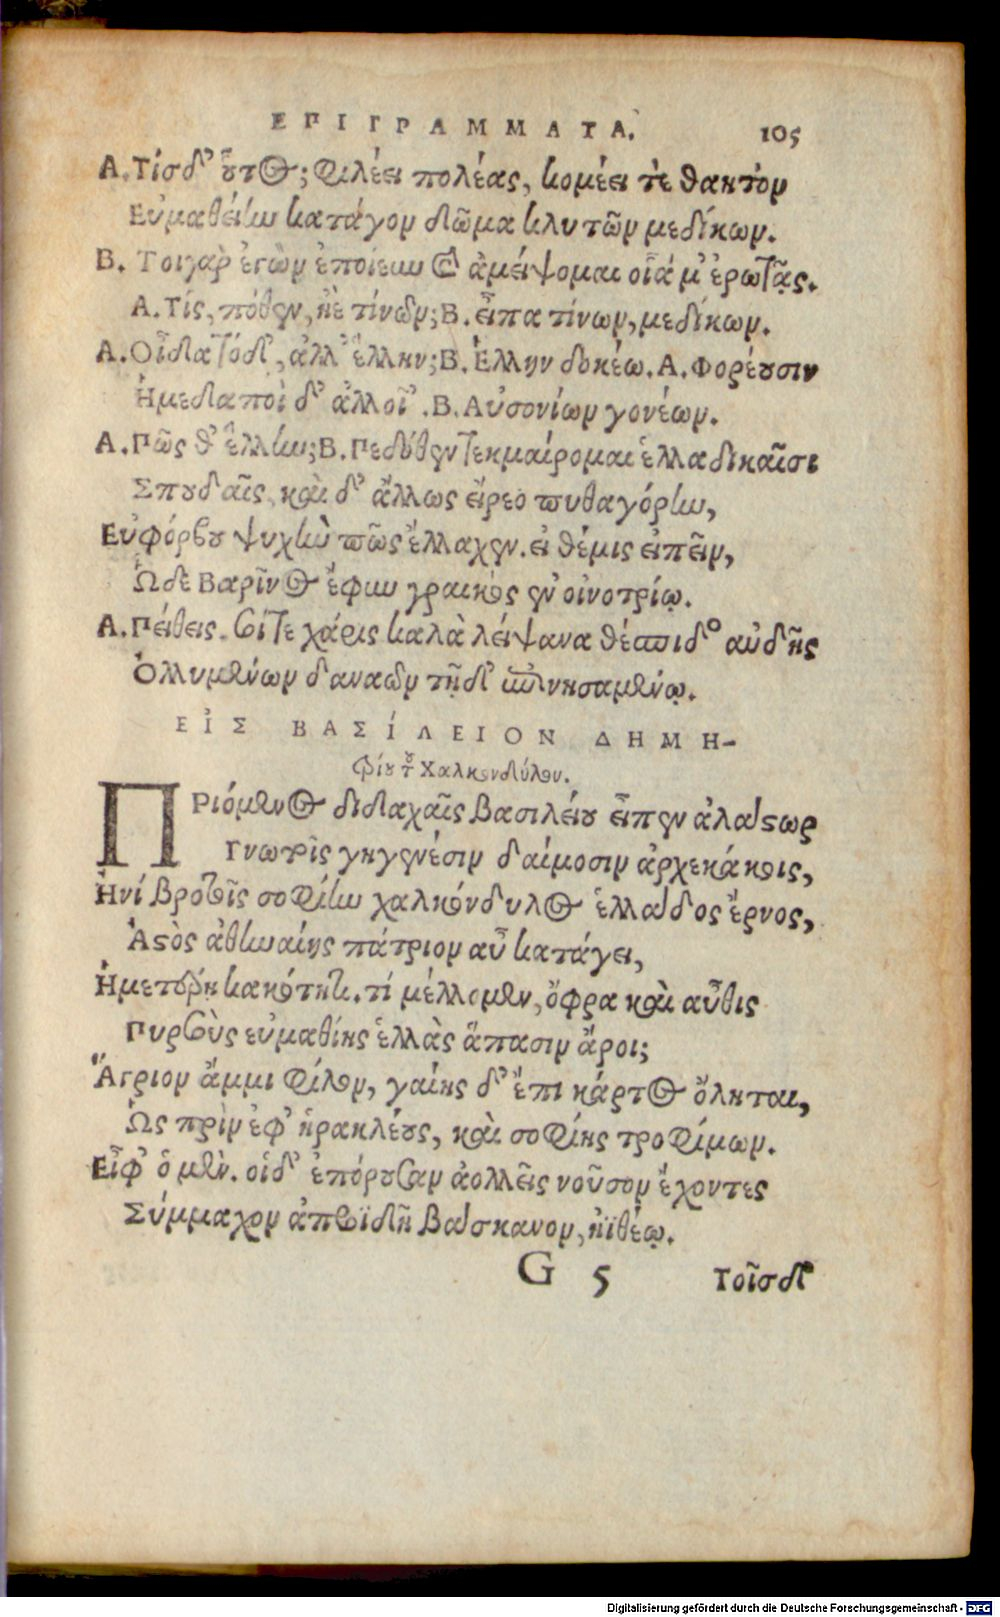 ΕΠΙΓΡΑΜΜΑΤΑ. 105
Α. Τίς δ' οὗτος; φιλέει πολέας, κομέει τὲ θακτὸν
Εὐμαθείην κατάγον δῶμα κλυτῶν μεδίκων.
Β. Τοιγὰρ ἐγὼν ἐποίευν καὶ ἀμείψομαι οἷά μ' ἐρωτᾷς.
Α. Τίς, πόθεν, ἠὲ τίνων; Β. εἶπα τίνων, μεδίκων.
Α. Οἶδα τόδ', ἀλλ' ἕλλην; Β. Ἕλλην δοκέω. Α. Φορέουσιν
Ἡμεδαποὶ δ' ἀλλοῖ'. Β. Αὐσονίων γονέων.
Α. Πῶς θ' ἕλλην; Β. Πεύθεν τεκμαίρομαι ἑλλαδικαῖσι
Σπουδαῖς, καὶ δ' ἄλλως εἴρεο πυθαγόρην,
Εὐφόρβου ψυχὴν πῶς ἔλλαχεν. εἰ θέμις εἰπεῖν,
Ὧδε Βαρῖνος ἔφυν γραικὸς ἐν οἰνοτρίῳ.
Α. Πείθεις. σοί τε χάρις καλὰ λείψανα θέσπιδος αὐδῆς
Ὀλλυμένων δαναῶν τῇδ' ἀνακτησαμένῳ.
ΕἸΣ ΒΑΣΙΛΕΙΟΝ ΔΗΜΗ-
τρίου τοῦ Χαλκονδύλου.
Πριόμενος διδαχαῖς βασιλείου εἶπεν ἀλάστωρ
Γνωτοῖς γηγενέσιν δαίμοσιν ἀρχεκάκοις,
Ἠνί βροτοῖς σοφίην χαλκόνδυλος ἑλλάδος ἔρνος,
Ἀστὸς ἀθηναίης πάτριον αὖ κατάγει,
Ἡμετέρῃ κακότητι. τί μέλλομεν, ὄφρα καὶ αὖθις
Πυρσοὺς εὐμαθίης ἑλλὰς ἅπασιν ἄροι;
Ἄγριον ἄμμι φίλον, γαίης δ' ἔπι κάρτος ὄληται,
Ὡς πρὶν ἐφ' ἡρακλέους, καὶ σοφίης τροφίμων.
Εἶφ' ὁ μὲν. οἱ δ' ἐπόρουσαν ἀολλεῖς νοῦσον ἔχοντες
Σύμμαχον ἀπροϊδῆ βάσκανον, ἠϊθέῳ.
G 5 Τοῖσδ'
Digitalisierung gefördert durch die Deutsche Forschungsgemeinschaft - DFG